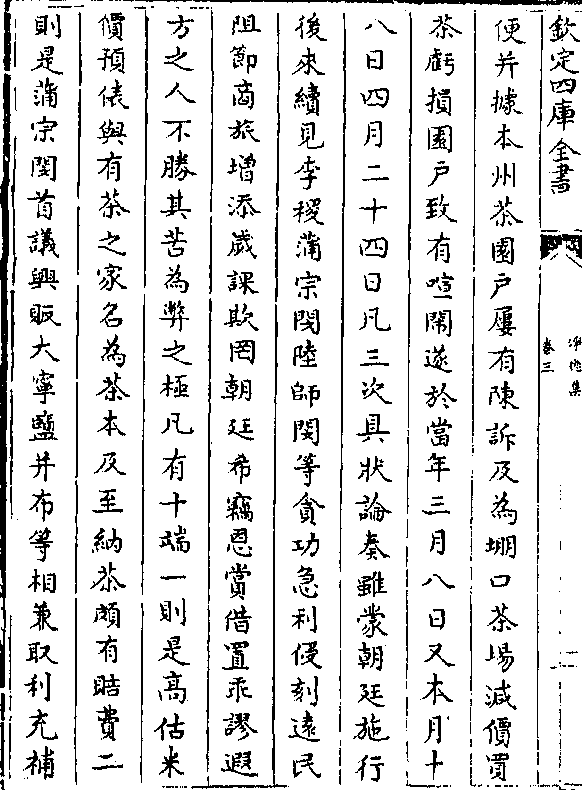 欽定四庫全書
淨德集
卷三
便并據本州茶園户屢有陳訴及為堋口茶場減價買
茶虧損園户致有喧閙遂於當年三月八日又本月十
八日四月二十四日凡三次具狀論奏雖蒙朝廷施行
後來續見李稷蒲宗閔陸師閔等貪功急利侵刻逺民
阻節商旅增添嵗課欺罔朝廷希竊恩賞借置乖謬遐
方之人不勝其苦為弊之極凡有十端一則是髙估米
價預俵與有茶之家名為茶本及至納茶頗有
費二
則是蒲宗閔首議興販大寧鹽并布等相兼取利充補